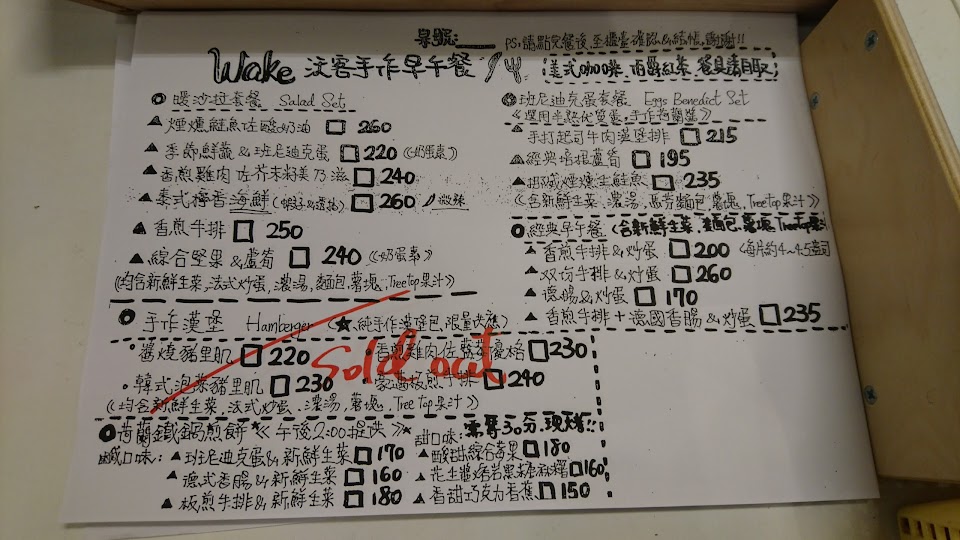 桌號:___ PS:請點完餐後,至櫃臺確認&結帳,謝謝!!
Wake 汶客手作早午餐 1/4. 美式咖啡.雨爵紅茶 餐具請自取
暖沙拉套餐 Salad Set
▲煙燻鮭魚佐酸奶油 □ 260
▲季節鮮蔬&班尼迪克蛋 □ 220 (奶蛋素)
▲香煎雞肉佐芥末籽美乃滋 □ 240
▲泰式檸香海鮮 □ 260 微辣
▲香煎牛排 □ 250
▲綜合堅果&蘆筍 □ 240 (奶蛋素)
(均含新鮮生菜,法式炒蛋,濃湯,麵包,薯塊,TreeTop果汁)
班尼迪克蛋套餐 Eggs Benedict Set
手作荷蘭醬
▲手打起司牛肉漢堡排 □ 215
▲經典培根蘆筍 □ 195
▲挪威煙燻生鮭魚 □ 235
(含新鮮生菜,濃湯,馬芬麵包,薯塊,TreeTop果汁)
經典早午餐 (含新鮮生菜,麵包,薯塊,TreeTop果汁
▲香煎牛排&炒蛋 □ 200 (每片約4~4.5盎司
▲双份牛排&炒蛋 □ 260
▲德腸&炒蛋 □ 170
▲香煎牛排+德國香腸&炒蛋 □ 235
手作漢堡 Hamberger (★純手作漢堡包,限量供應)
•醬燒豬里肌 □ 220
•香煎雞肉佐 優格 □ 230
•韓式泡菜豬里肌 □ 230
板煎牛排 □ 240
Sold out
(均含新鮮生菜,法式炒蛋,濃湯,薯塊,Tree top果汁)
荷蘭鐵鍋煎餅 *《午後2:00提供》* 需等30分,現烤!!
鹹口味:▲班尼迪克蛋&新鮮生菜 □ 170
▲德式香腸&新鮮生菜 □ 160
▲板煎牛排&新鮮生菜 □ 180
甜口味:
▲酸甜綜合莓果 □ 180
▲花生醬焙岩黑糖麻糬 □ 160
▲香甜巧克力香蕉 □ 150